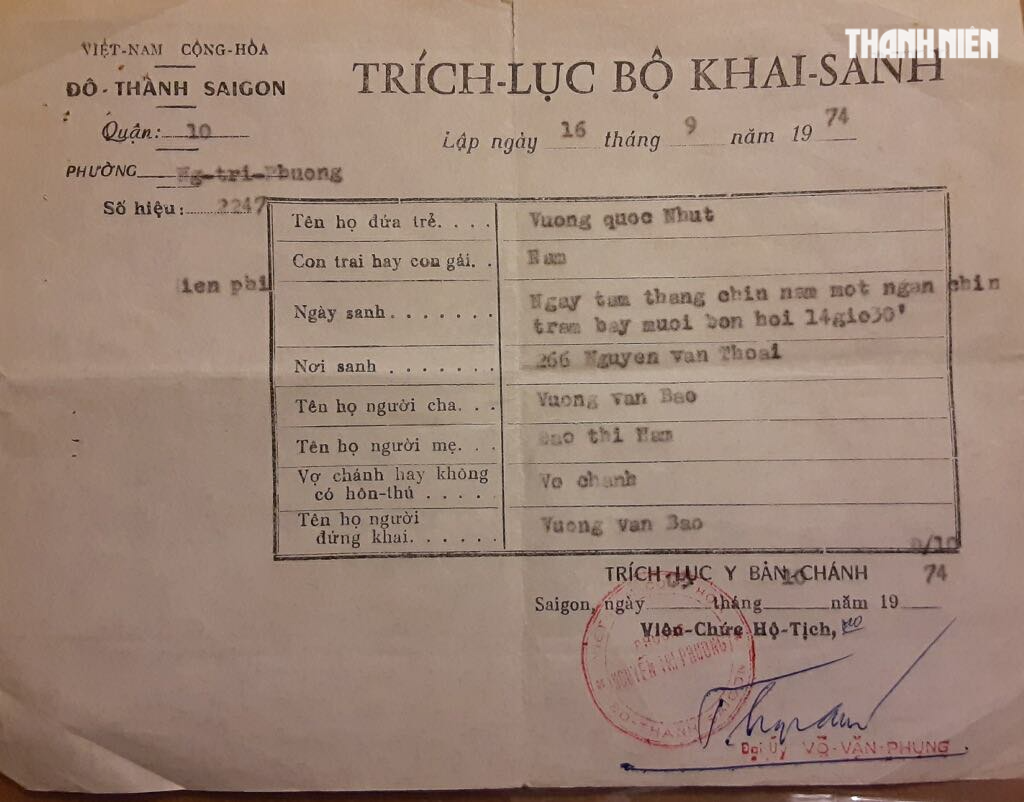 THANH NIÊN
VIỆT-NAM CỘNG-HÒA
ĐÔ-THÀNH SAIGON
TRÍCH-LỤC BỘ KHAI-SANH
Quận: 10
Lập ngày 16 tháng 9 năm 19 74
PHƯỜNG Ng-tri-Phuong
Số hiệu: 2247
Tên họ đứa trẻ. . . . Vuong quoc Nhut
Con trai hay con gái. . Nam
ien phi
Ngày sanh . . . . . . . Ngay tam thang chin nam mot ngan chin
tram bay muoi bon hoi 14gio30'
Nơi sanh . . . . . . . 266 Nguyen van Thoai
Tên họ người cha. . . Vuong van Bao
Tên họ người mẹ. . . thi Nam
Vợ chánh hay không
có hôn-thú . . . . . Vo chanh
Tên họ người
đứng khai. . . . . . Vuong van Bao
TRÍCH-LỤC Y BẢN-CHÁNH
Saigon, ngày tháng 10 năm 19 74
Viên-Chức Hộ-Tịch,
PHƯỜNG
NGUYỄN TRI PHƯƠNG
ĐÔ-THÀNH SAIGON
Đại Úy VÕ-VĂN-PHỤNG